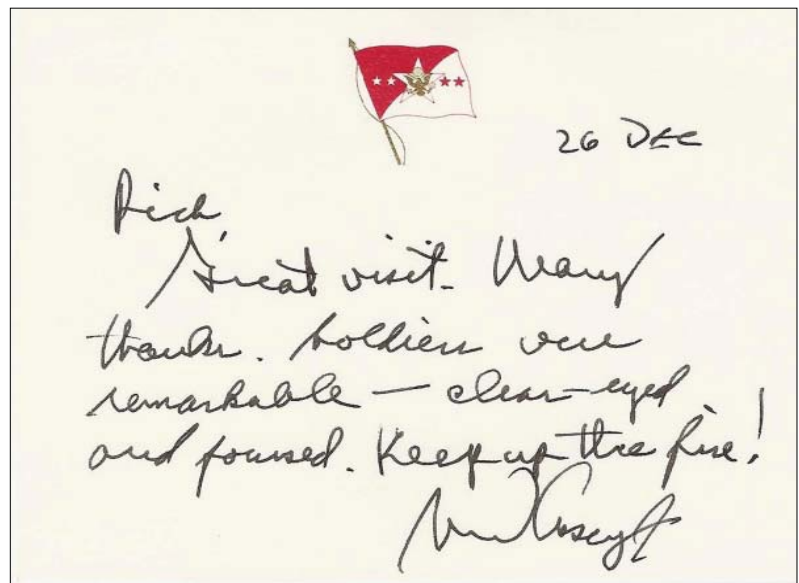 26 DEC
Rich
Great visit. Many
thanks. Soldiers were
remarkable — clear-eyed
and focused. Keep up the fire!